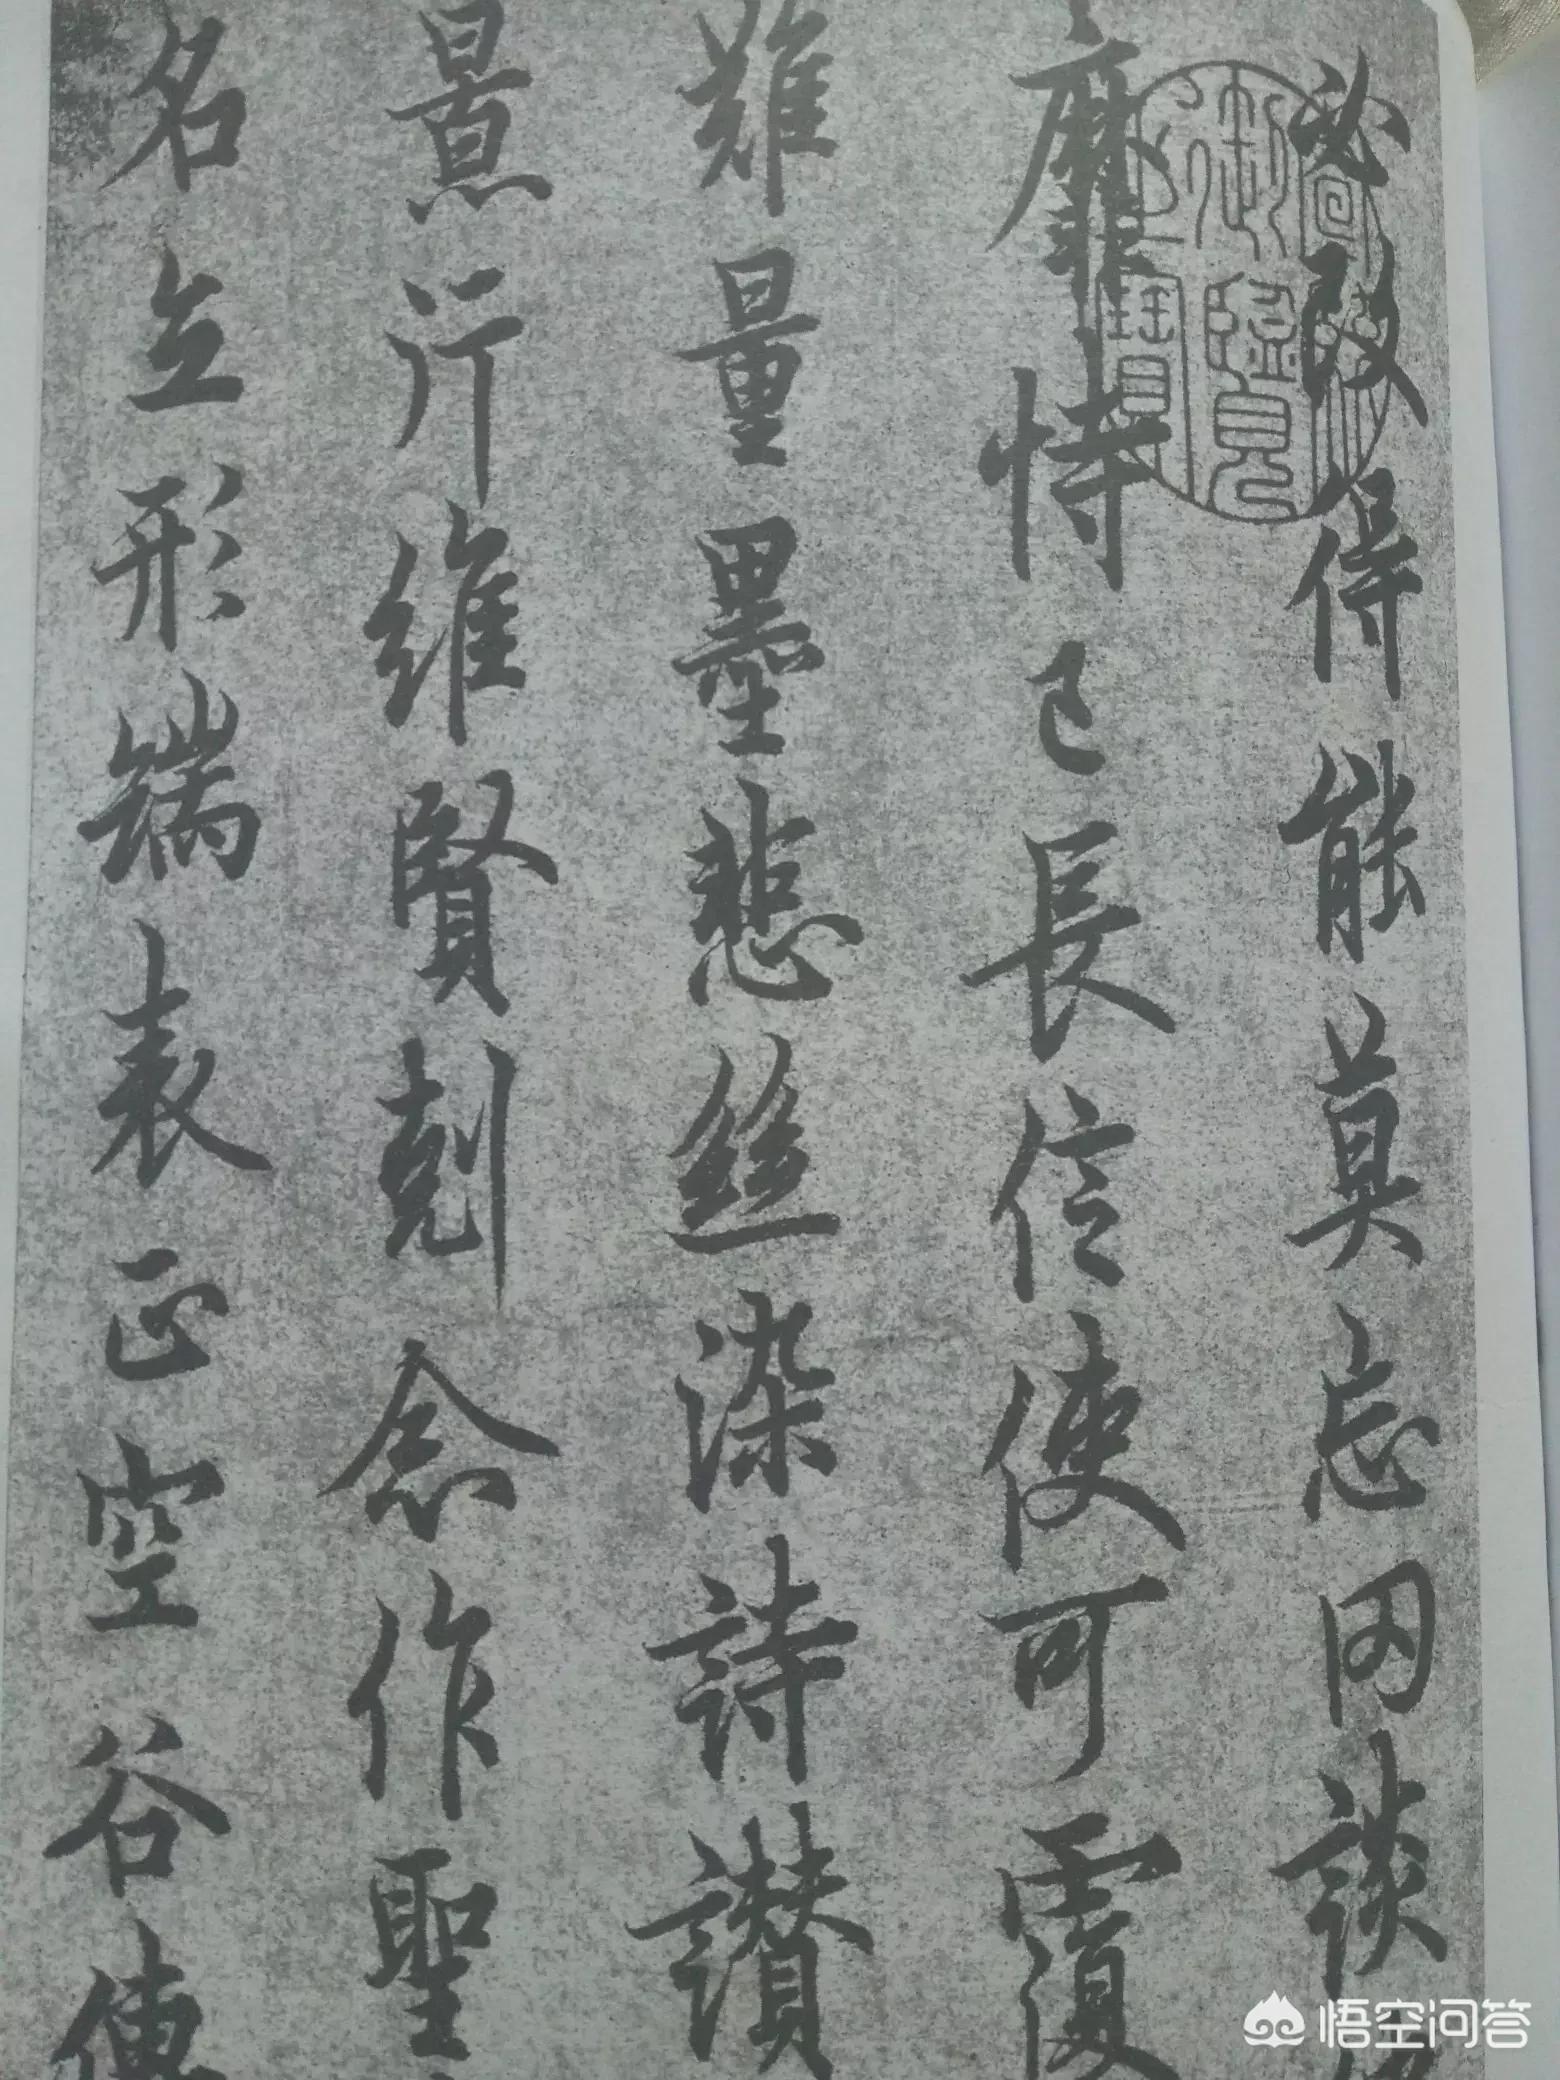 必改得能莫忘罔談
靡恃己長信使可覆
難量墨悲絲染詩讚
景行維賢剋念作聖
名立形端表正空谷傳
御隆鑑
悟空问答